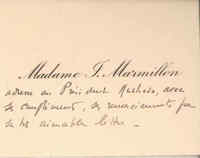 Madame J. Marmillon
adresse au Président Mathieu, avec
ses compliments, ses remerciements pour
sa très aimable lettre _